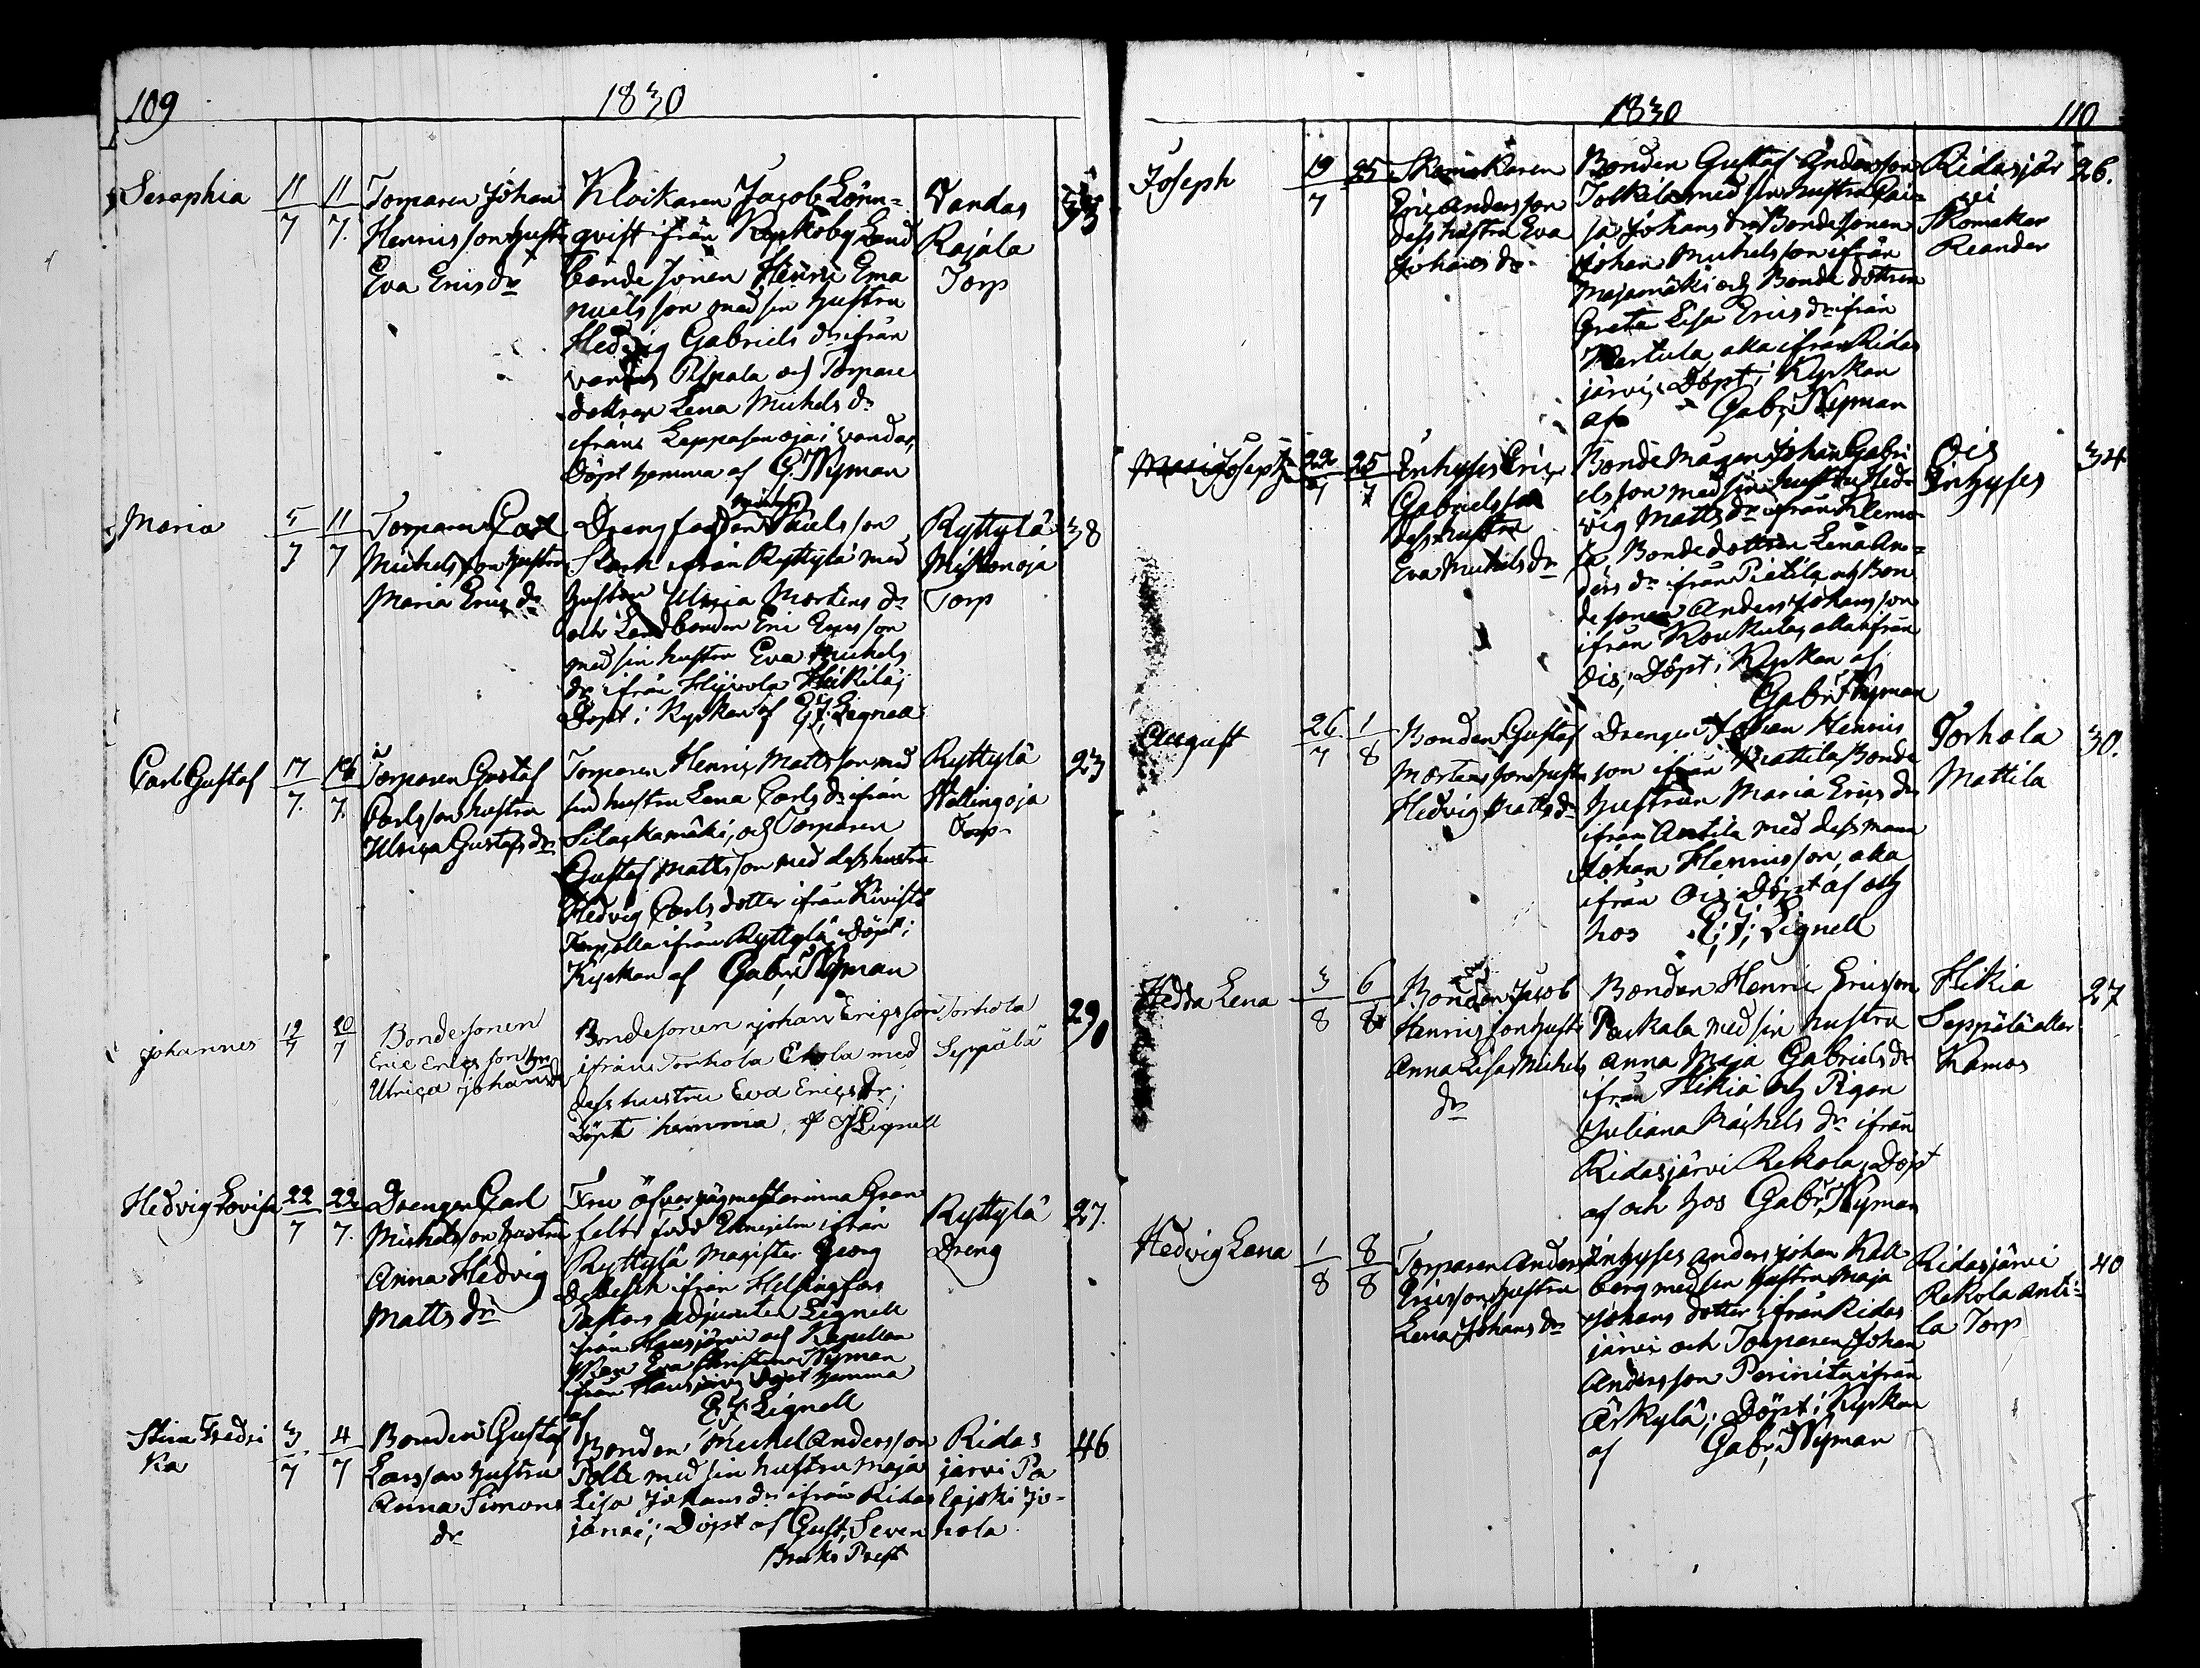 109
1830
Seraphia
11/7
11/7.
Torparen Johan
Henricsson hustr
Eva Erics dr
Klockaren Jacob Lönn=
qvist ifrån Kyrkoby Land
bonde sonen Henric Ema
nuelsson med sin hustru
Hedvig Gabriels dr ifrån
Vandas Pispala och Torpare
dottren Lena Michels dr
ifrån Leppasenoja i Vandas,
Döpt hemma af G. Nyman
Vandas
Rajala
Torp
Maria
5/7
11/7
Torparen Carl
Michelsson hustru
Maria Erics dr
Dreng Pauls son
Stark ifrån Ryttylä med
hustru Ulrica Mårtens dr
och Landbonden Eric Ersson
med sin hustru Eva Michels
dr ifrån Hyvola Heikilä;
Döpt i Kyrkan af E. J. Lignell
Ryttylä
Mikonoja
Torp
38
Carl Gustaf
17/7.
18/7.
Torparen Gustaf
Carlsson hustru
Ulrica Gustafs dr
Torparen Henric Mattsson med
sin hustru Lena Carls dr ifrån
Silaskamäki, och Torparen
Gustaf Mattsson med dess hustru
Hedvig Carls dotter ifrån Kivistö
Torp, alla ifrån Ryttylä, Döpt i
Kyrkan af Gabr. Nyman
Ryttylä
Hallingoja
Torp
23
Johannes
19/7
20/7
Bondesonen
Eric Ericsson hr
Ulrica Johans dr
Bondesonen Johan Ericsson
ifrån Torhola Ekola med
dess hustru Eva Erics dr;
Döpt hemma af EJ Lignell
Torhola
Seppälä
29
Hedvig Lovisa
22/7
22/7.
Drengen Carl
Michelsson hustru
Anna Hedvig
Matts dr
Fru öfverjägmästarinna Gran
felt född ifrån
Ryttylä Magister Georg
ifrån Helsingfors
Pastors adjuncten Lignell
från Hausjärvi och Kapellan
Eva Christina Nyman
ifrån Hausjärvi Döpt hemma
af E. J. Lignell
Ryttylä
Dreng
27.
Stina Fredri
ka
3/7
4/7
Bonden Gustaf
Larsson hustru
Anna Simons
dr
Bonden Michel Andersson
Tolk med sin hustru Maja
Lisa Johans dr ifrån Ridas
järvi; Döpt af Gust. Seven
Bruks Prest
Ridas
järvi Pa
lajoki Jo-
hola
46
1830
110
Joseph
19/7
25
Skomakaren
Eric Andersson
dess hustru Eva
Johans dr
Bonden Gustaf Andersson
Tolkila med sin hustru Cai=
sa Johans dr Bonde sonen
Johan Michelsson ifrån
Majamäki och Bonde dottren
Greta Lisa Erics dr ifrån
Mertula, alla ifrån Ridas
järvi; Döpt i Kyrkan
af Gabr. Nyman
Ridasjär
vi
Skomakar
Reander
26.
Joseph
22/7
25/7
Inhyses Eric
Gabrielsson
dess hustru
Eva Michels dr
Bonde Mågen Johan Gabri
elsson med sin hustru Hed=
vig Matts dr ifrån Klemo=
la, Bonde dottren Lena An=
ders dr ifrån Pietila och Bon
de sonen Anders Johansson
ifrån Koukula, alla ifrån
Ois; Döpt i Kyrkan af
Gabr. Nyman
Ois
Inhyses
34
August
26/7
1/8
Bonden Gustaf
Mårtensson hustr
Hedvig Matts dr
Drengen Johan Henrics
son ifrån Mattila Bonde
hustrun Maria Erics dr
ifrån Antila med dess man
Johan Henricsson, alla
ifrån Ois, Döpt af och
hos E. J. Lignell
Torhola
Mattila
30.
Hedda Lena
3/8
6/8
Bonden Jacob
Henricsson hustr
Anna Lisa Michels
dr
Bonden Henric Ericsson
Paukala med sin hustru
Anna Maja Gabriels dr
ifrån Hikiä och Pigan
Juliana Michels dr ifrån
Ridasjärvi Rekola; Döpt
af och hos Gabr. Nyman
Hikia
Seppälä eller
Ramos
27
Hedvig Lena
1/8
8/8
Torparen Anders
Ericsson hustru
Lena Johans dr
Inhyses Anders Johan Kall
berg med sin hustru Maja
Johans dotter ifrån Ridas
järvi och Torparen Johan
Andersson Perinitu ifrån
Erkylä; Döpt i Kyrkan
af Gabr. Nyman
Ridasjärvi
Rekola Anti=
la Torp
40